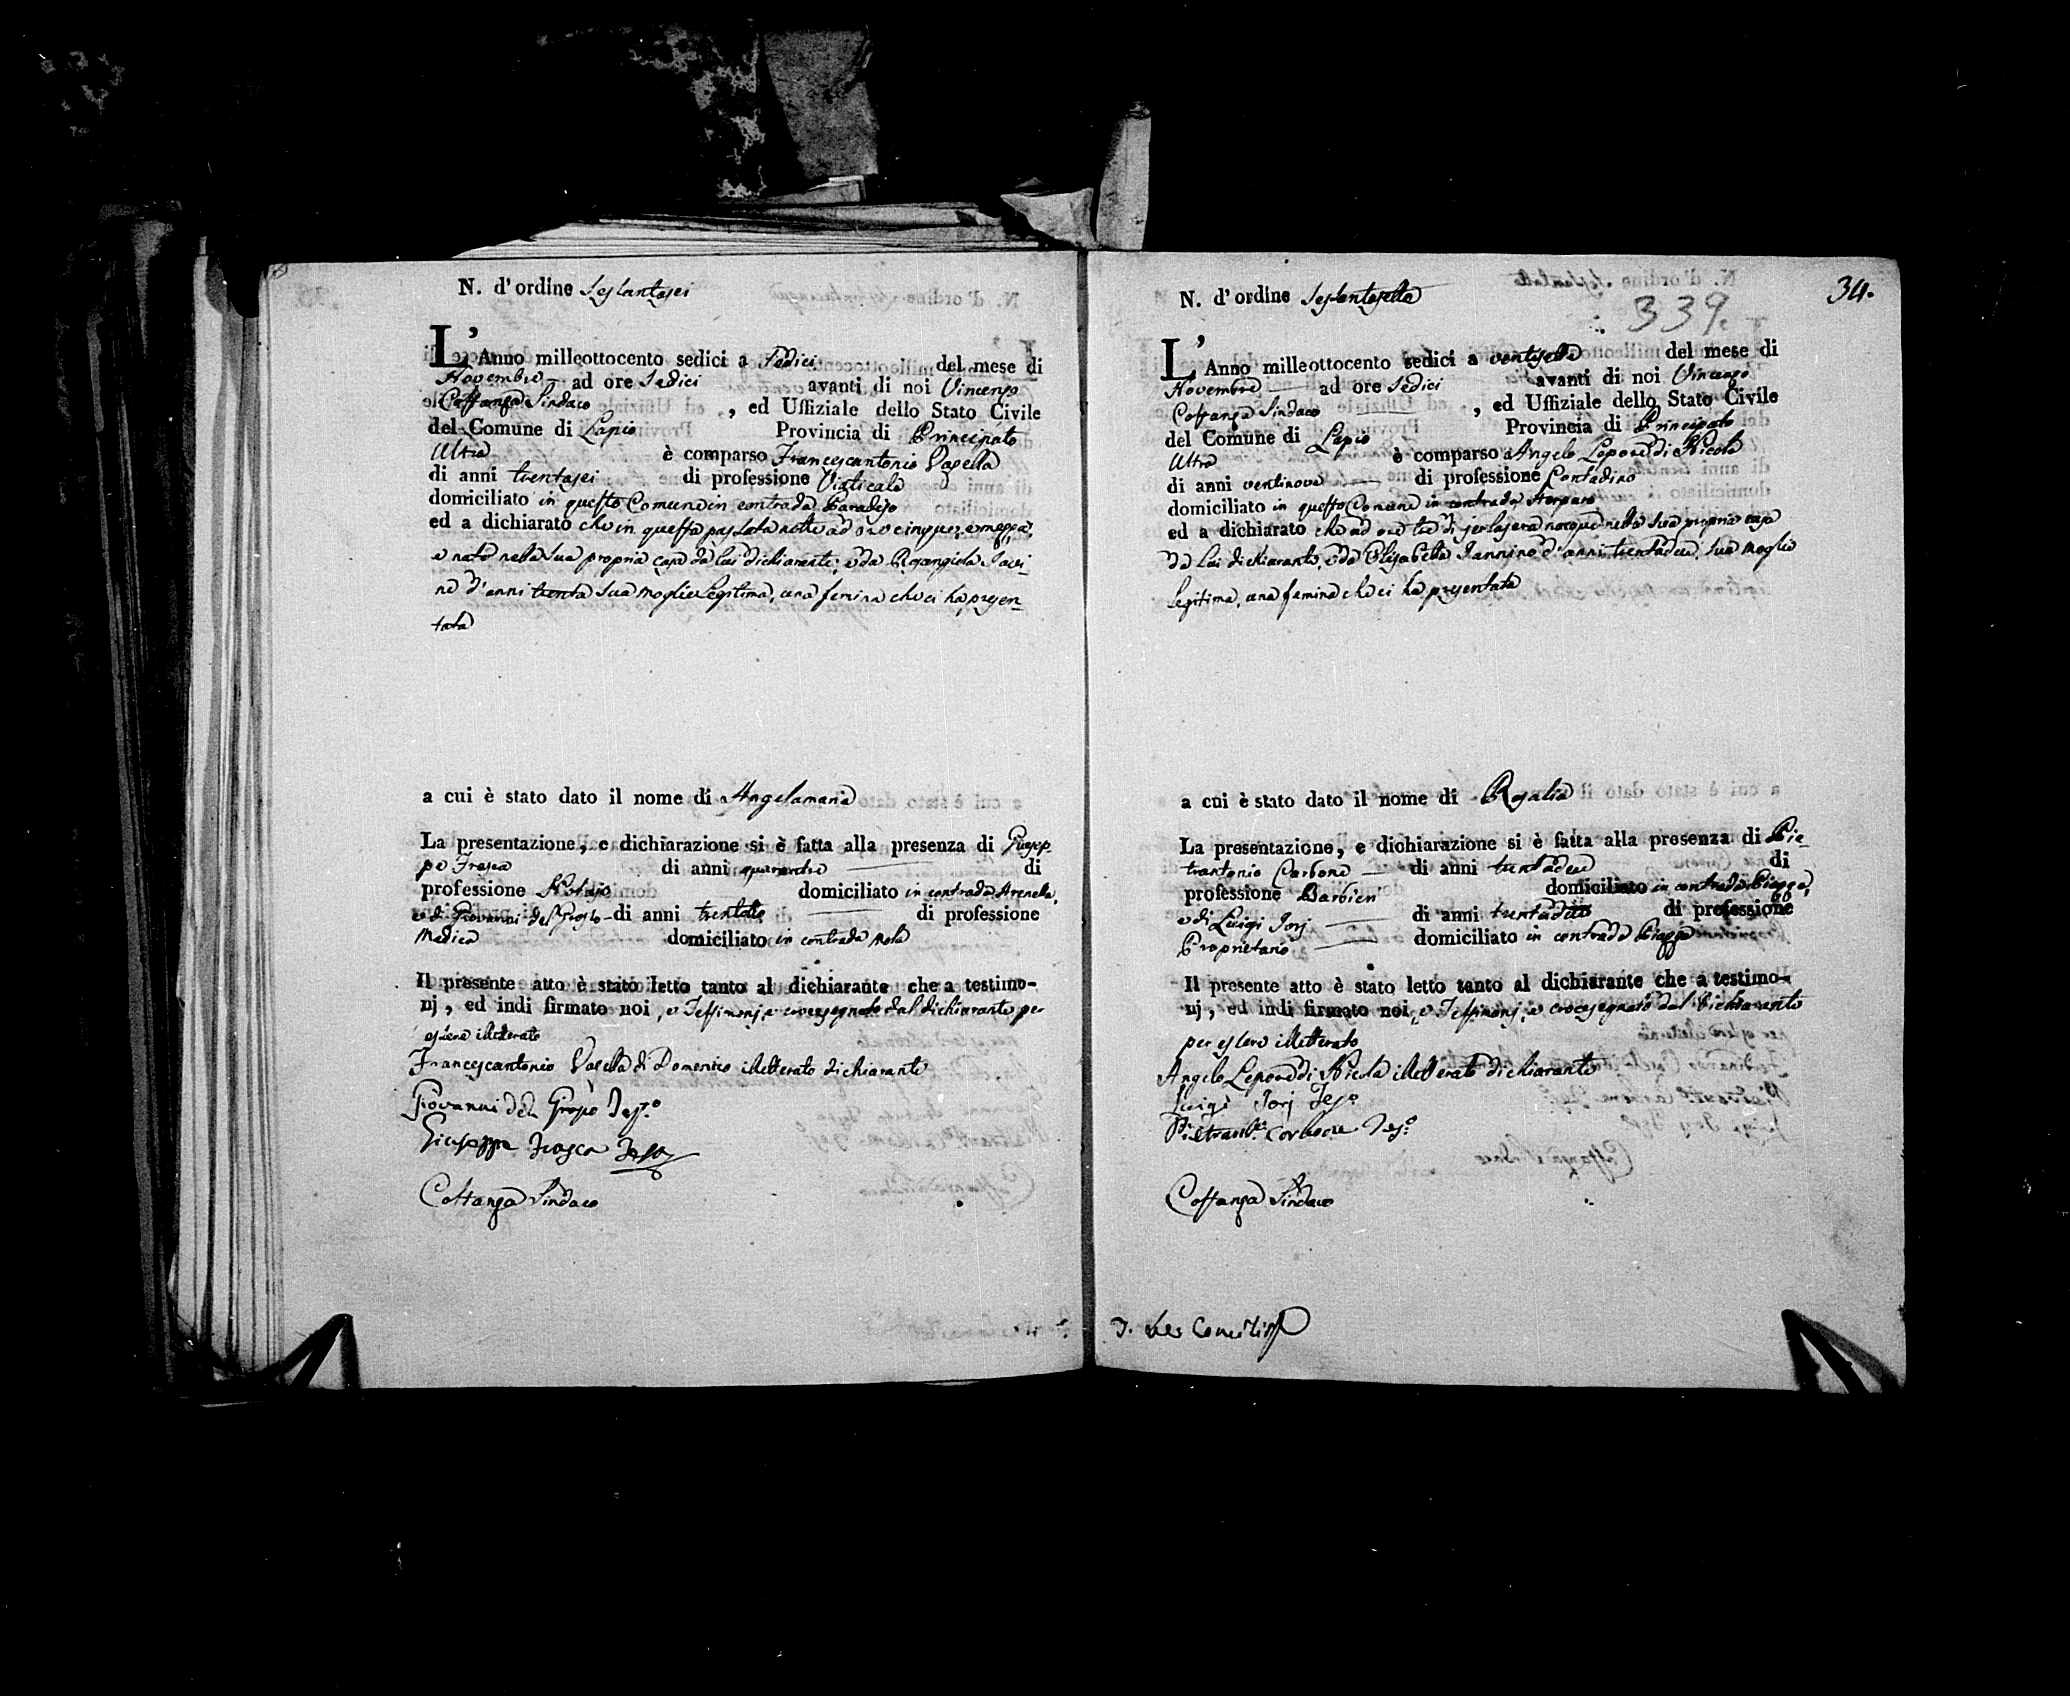 N. d'ordine Sessantasei
L'Anno milleottocento sedici a Sedici del mese di
Novembre ad ore Sedici avanti di noi Vincenzo
Costanza Sindaco , ed Uffiziale dello Stato Civile
del Comune di Lapio Provincia di Principato
Ultra è comparso Francescantonio Vasella
di anni trentasei di professione Viaticale
domiciliato in questo Comune in contrada Paradiso
ed a dichiarato che in questa passata notte ad ore cinque, e mezza,
e nata nella sua propria casa da lui dichiarante, e da Rosangiola Iavi-
ne d'anni trenta sua moglie legitima, una femina che ci ha presen-
tata
a cui è stato dato il nome di Angelamaria
La presentazione, e dichiarazione si è fatta alla presenza di Giusep-
pe Frasca di anni di
professione Notajo domiciliato in contrada Arenella,
e di Giovanni del Grosso di anni trentotto di professione
Medico domiciliato in contrada Mola
Il presente atto è stato letto tanto al dichiarante che a testimo-
nj, ed indi firmato noi, e Testimonj, e crocesegnato dal dichiarante per
essere illetterato
Francescantonio Vasella di Domenico illetterato dichiarante
Giovanni del Grosso Tes.o
Giuseppe Frasca
Costanza Sindaco
34.
339.
N. d'ordine Sessantasette
L'Anno milleottocento sedici a ventisette del mese di
Novembre ad ore Sedici avanti di noi Vincenzo
Costanza Sindaco , ed Uffiziale dello Stato Civile
del Comune di Lapio Provincia di Principato
Ultra è comparso Angelo Lepore di Nicola
di anni ventinove di professione Contadino
domiciliato in questo Comune in contrada
ed a dichiarato che ad ore tre di jerlasera nacque nella sua propria casa
da lui dichiarante, e da Elisabetta Iannino d'anni trentadue, sua moglie
legitima, una femina che ci ha presentata
a cui è stato dato il nome di Rosalia
La presentazione, e dichiarazione si è fatta alla presenza di Pie-
trantonio Carbone di anni trentadue di
professione Barbieri domiciliato in contrada Piazza,
e di Luigi Iorj di anni di professione
Proprietario domiciliato in contrada Piazza
Il presente atto è stato letto tanto al dichiarante che a testimo-
nj, ed indi firmato noi, e Testimonj, e crocesegnato dal dichiarante
per essere illetterato
Angelo Lepore di Nicola illetterato dichiarante
Luigi Iorj Tes.o
Carbone Tes.o
Costanza Sindaco